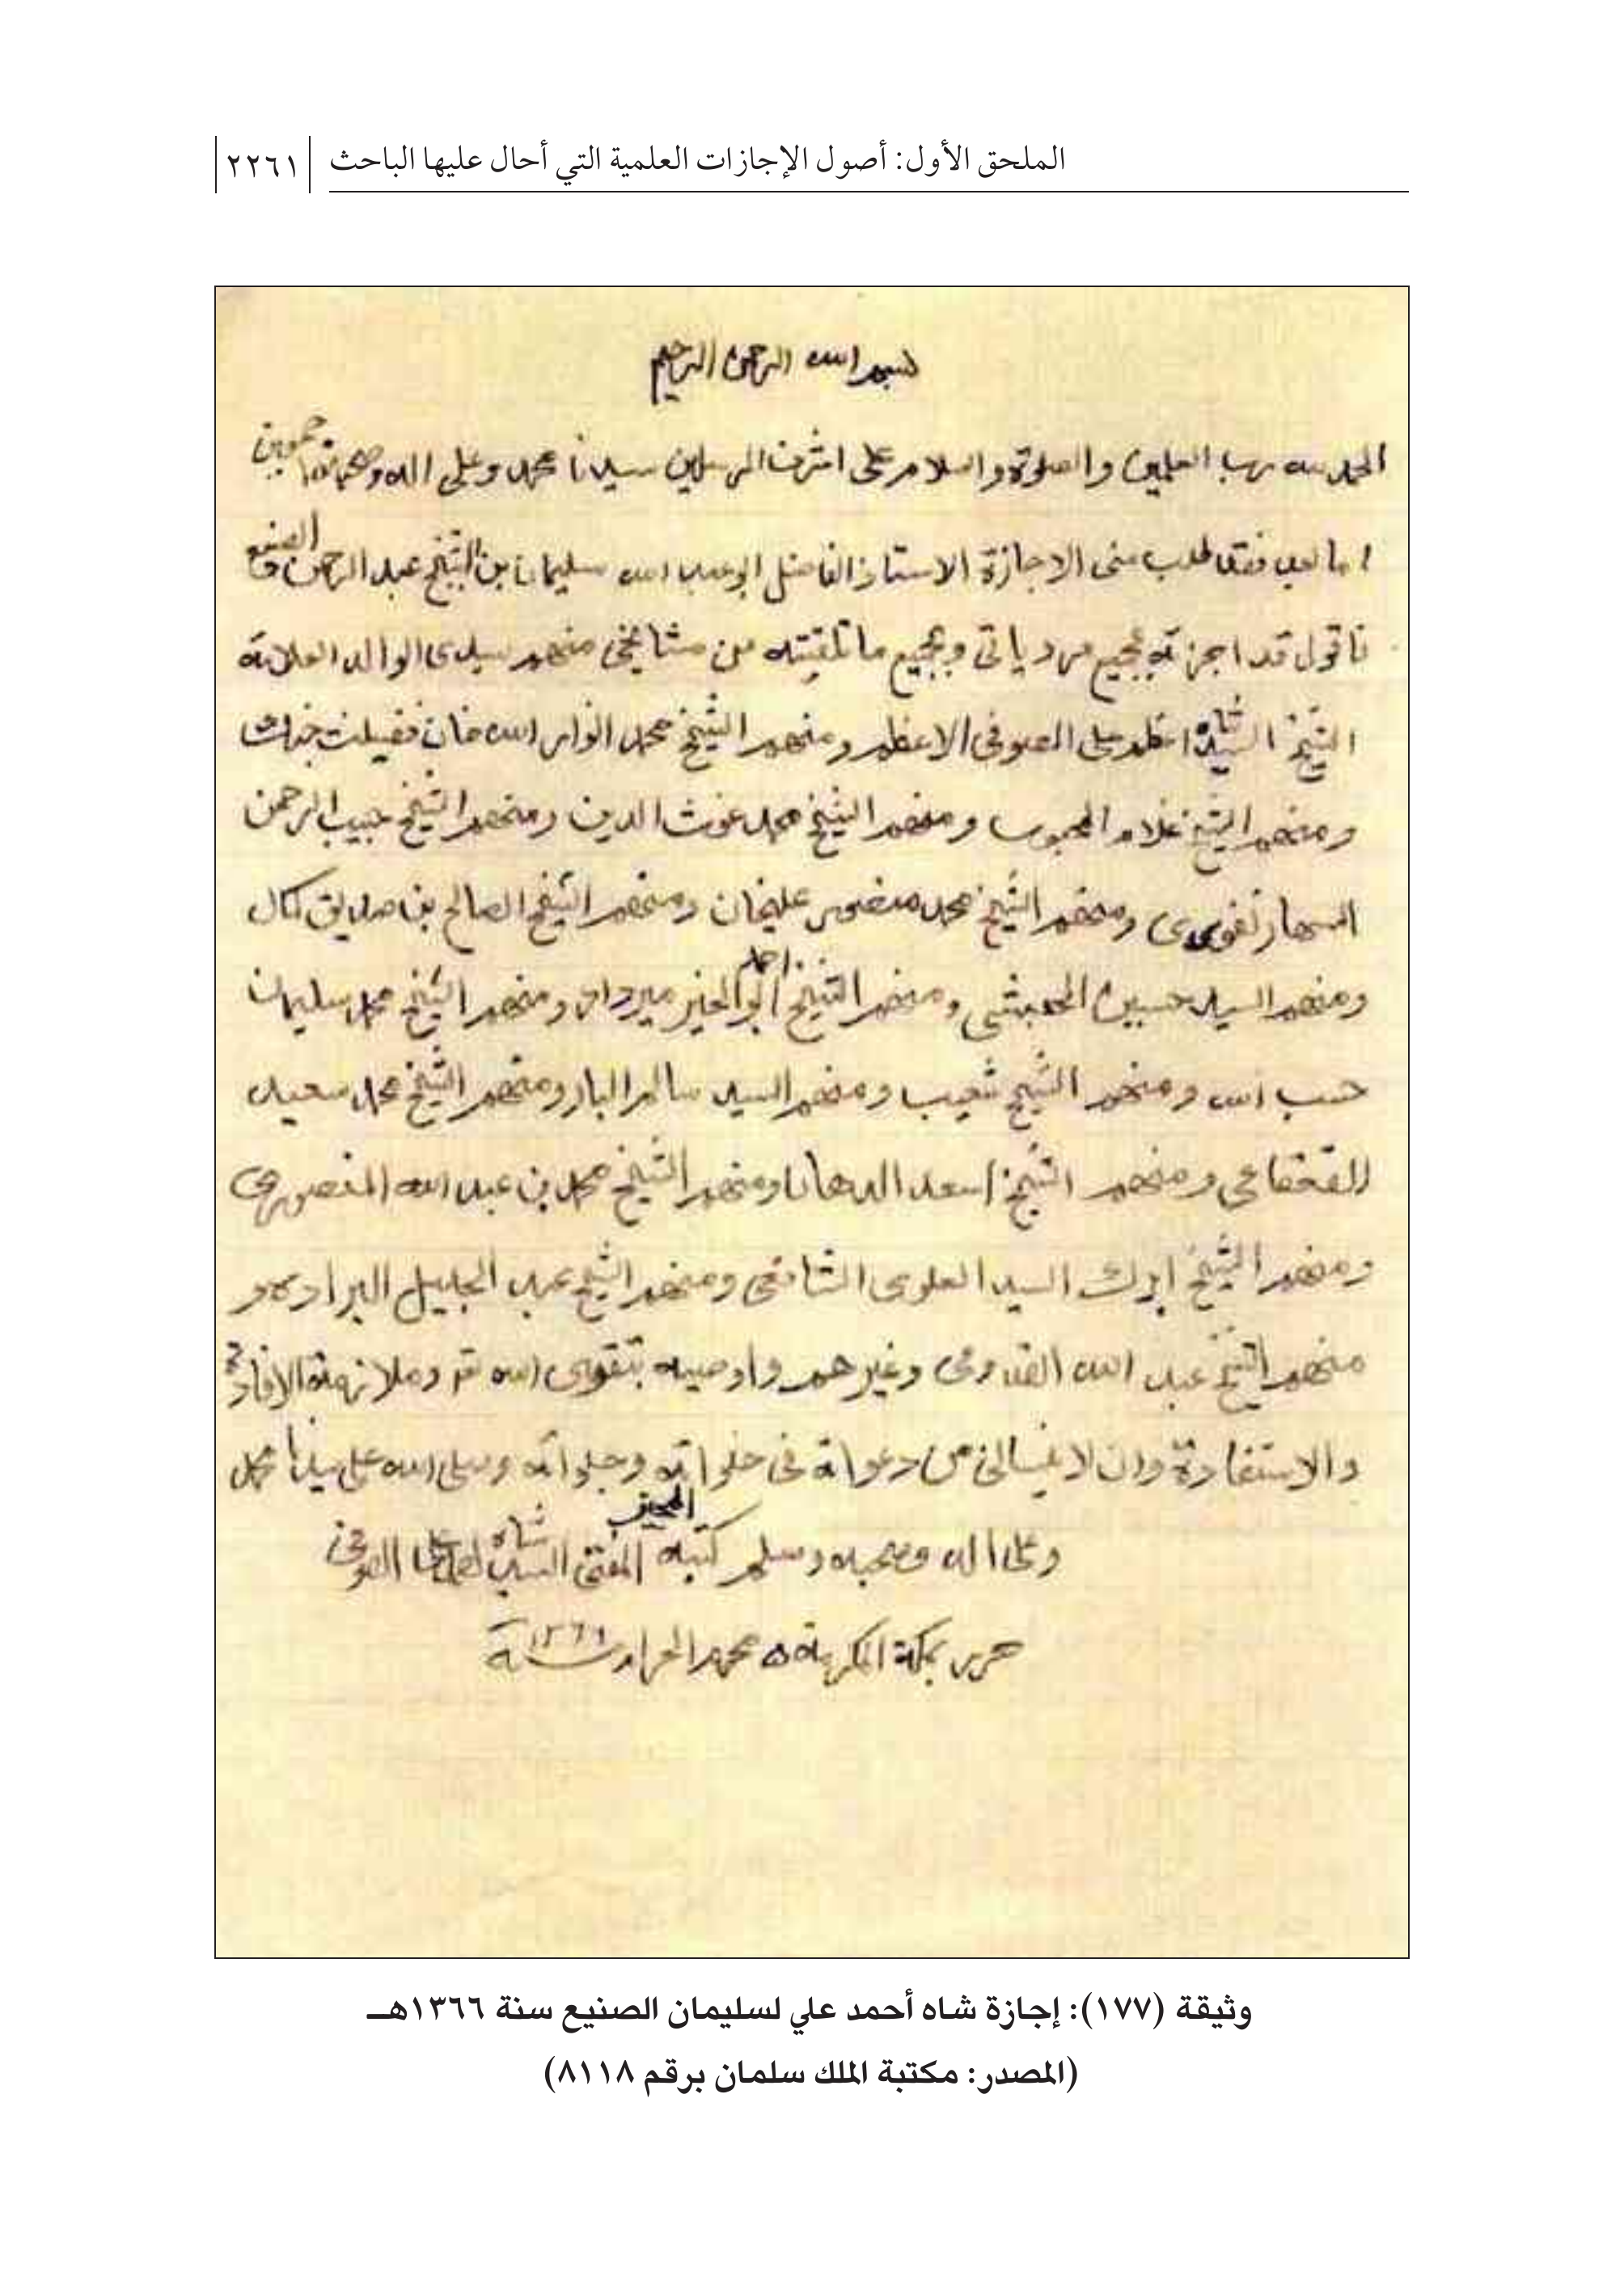 الملحق الأول: أصول الإجازات العلمية التي أحال عليها الباحث ٢٢٦١
بسم الله الرحمن الرحيم
الحمد لله رب العلمين والصلوة والسلام على اشرف المرسلين سيدنا محمد وعلى اله وصحبه اجمعين
اما بعد فقد طلب منى الاجازة الاستاذ الفاضل ابو عبد الله سليمان بن الشيخ عبد الرحمن الصنيع
فاقول قد اجزته بجميع مروياتى وبجميع ما تلقيته من مشايخى منهم سيدى الوالد العلامة
الشيخ السيد شاه اعظم على الصوفى الاعظم ومنهم الشيخ محمد انوار الله خان فضيلت جنك
ومنهم الشيخ غلام المحبوب ومنهم الشيخ محمد غوث الدين ومنهم الشيخ حبيب الرحمن
السهارنفورى ومنهم الشيخ محمد منصور عليخان ومنهم الشيخ الصالح بن صديق كمال
ومنهم السيد حسين الحبشى ومنهم الشيخ احمد ابو الخير ميرداد ومنهم الشيخ محمد سليمان
حسب الله ومنهم الشيخ شعيب ومنهم السيد سالم البار ومنهم الشيخ محمد سعيد
القعقاعى ومنهم الشيخ اسعد الدهان ومنهم الشيخ محمد بن عبد الله المنصورى
ومنهم الشيخ السيد العلوى الشافعى ومنهم الشيخ عبد الجليل البراده و
منهم الشيخ عبد الله القدومى وغيرهم واوصيه بتقوى الله وملازمة الافادة
والاستفادة وان لا ينسانى من دعواته فى خلواته وجلواته وصلى الله على سيدنا محمد
وعلى اله وصحبه وسلم كتبه المجيز المفتى السيد شاه احمد على الصوفى
حرر بمكة المكرمة ٥ محرم الحرام سنة ١٣٦٦
وثيقة (١٧٧): إجازة شاه أحمد علي لسليمان الصنيع سنة ١٣٦٦هـ
(المصدر: مكتبة الملك سلمان برقم ٨١١٨)